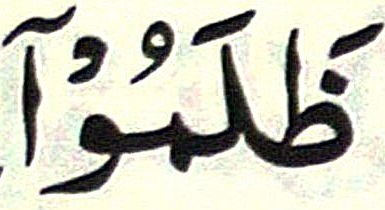 ظَلَمُوْآ